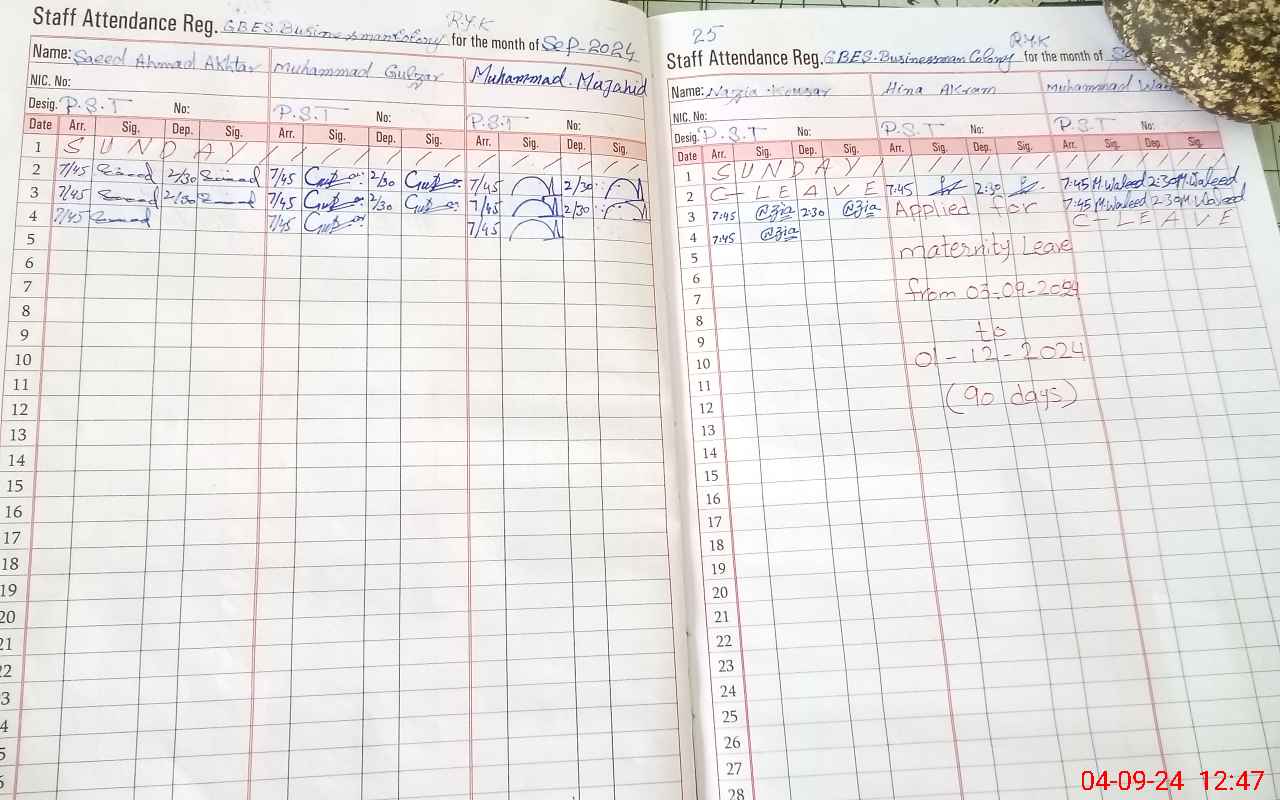 R.Y.K
Staff Attendance Reg. GBES.Businessman Colony for the month of Sep-2024
Name: Saeed Ahmad Akhtar Muhammad Gulzar Muhammad.Mujahid
NIC. No:
Desig. P.S.T No: P.S.T No: P.S.T No:
Date Arr. Sig. Dep. Sig. Arr. Sig. Dep. Sig. Arr. Sig. Dep. Sig.
1 S U N D A Y
2 7/45 2/30 7/45 2/30 7/45 2/30
3 7/45 2/30 7/45 2/30 7/45 2/30
4 7/45 7/45 7/45
5
6
7
8
9
10
11
12
13
14
15
16
17
18
19
20
21
22
3
4
5
25
R.Y.K
Staff Attendance Reg. GBES.Businessman Colony for the month of Se
Name: Nazia Kousar Hina Akram Muhammad Wa
NIC. No:
Desig. P.S.T No: P.S.T No: P.S.T No:
Date Arr. Sig. Dep. Sig. Arr. Sig. Dep. Sig. Arr. Sig. Dep. Sig.
1 S U N D A Y
2 C-L E A V E 7:45 2:30 7:45 M.Waleed 2:30 M.Waleed
3 7:45 @zia 2:30 @zia Applied for 7:45 M.Waleed 2:30 M.Waleed
4 7:45 @zia C-L E A V E
5 maternity Leave
6
7 from 03-09-2024
8
9 to
10 01-12-2024
11
12 (90 days)
13
14
15
16
17
18
19
20
21
22
23
24
25
26
27
28
04-09-24 12:47